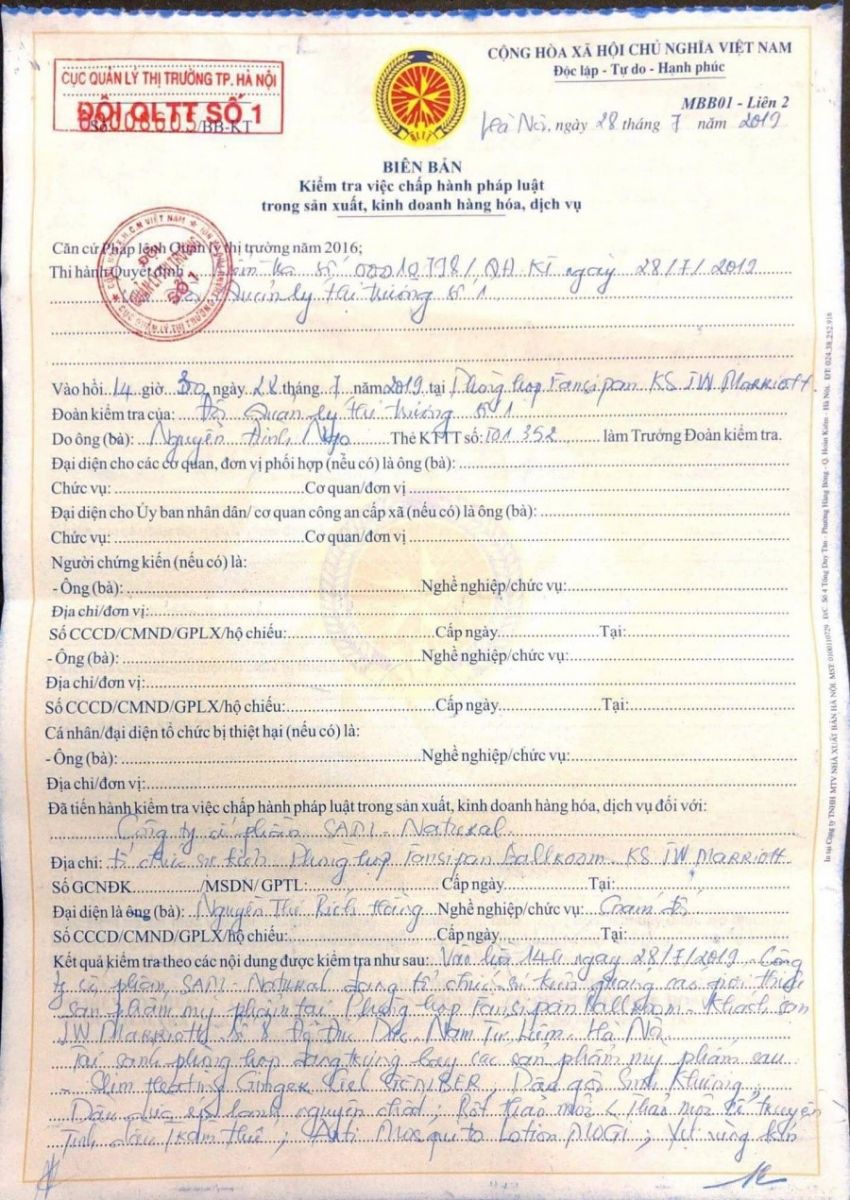 CỤC QUẢN LÝ THỊ TRƯỜNG TP. HÀ NỘI
ĐỘI QLTT SỐ 1
Số /BB-KT
CỘNG HÒA XÃ HỘI CHỦ NGHĨA VIỆT NAM
Độc lập - Tự do - Hạnh phúc
MBB01 - Liên 2
Hà Nội, ngày 28 tháng 7 năm 2019
BIÊN BẢN
Kiểm tra việc chấp hành pháp luật
trong sản xuất, kinh doanh hàng hóa, dịch vụ
Căn cứ Pháp lệnh Quản lý thị trường năm 2016;
Thi hành Quyết định kiểm tra số 00010798/QĐ KT ngày 28/7/2019
Quản lý thị trường số 1
Vào hồi 14 giờ 30 ngày 28 tháng 7 năm 2019 tại Phòng họp Fansipan KS JW Marriott
Đoàn kiểm tra của: Đội Quản lý thị trường số 1
Do ông (bà): Nguyễn Đình Thẻ KTTT số: T01 352 làm Trưởng Đoàn kiểm tra.
Đại diện cho các cơ quan, đơn vị phối hợp (nếu có) là ông (bà):
Chức vụ: Cơ quan/đơn vị
Đại diện cho Ủy ban nhân dân/ cơ quan công an cấp xã (nếu có) là ông (bà):
Chức vụ: Cơ quan/đơn vị
Người chứng kiến (nếu có) là:
- Ông (bà): Nghề nghiệp/chức vụ:
Địa chỉ/đơn vị:
Số CCCD/CMND/GPLX/hộ chiếu: Cấp ngày Tại:
- Ông (bà): Nghề nghiệp/chức vụ:
Địa chỉ/đơn vị:
Số CCCD/CMND/GPLX/hộ chiếu: Cấp ngày Tại:
Cá nhân/đại diện tổ chức bị thiệt hại (nếu có) là:
- Ông (bà): Nghề nghiệp/chức vụ:
Địa chỉ/đơn vị:
Đã tiến hành kiểm tra việc chấp hành pháp luật trong sản xuất, kinh doanh hàng hóa, dịch vụ đối với:
Công ty cổ phần SADI - Natural
Địa chỉ: tổ chức sự kiện Phòng họp Fansipan Ballroom - KS JW Marriott
Số GCNĐK /MSDN/ GPTL: Cấp ngày Tại:
Đại diện là ông (bà): Nguyễn Thị Bích Hằng Nghề nghiệp/chức vụ: Giám đốc
Số CCCD/CMND/GPLX/hộ chiếu: Cấp ngày Tại:
Kết quả kiểm tra theo các nội dung được kiểm tra như sau: Vào hồi 14h ngày 28/7/2019 Công
ty cổ phần SADI - Natural đang tổ chức sự kiện quảng cáo giới thiệu
sản phẩm mỹ phẩm tại Phòng họp Fansipan Ballroom - Khách sạn
JW Marriott số 8 Đỗ Đức Dục, Nam Từ Liêm, Hà Nội
Tại phòng họp đang trưng bày các sản phẩm mỹ phẩm sau
- Slim Heating Ginger Gel ; Dầu gội Sinh Khương
Dầu dừa ép lạnh nguyên chất ;
Tinh dầu ; Anti Mosquito Lotion MOGI ;
In tại Công ty TNHH MTV NHÀ XUẤT BẢN HÀ NỘI. MST: 0100110729 Đ/C: Số 4 Tống Duy Tân - Phường Hàng Bông - Q. Hoàn Kiếm - Hà Nội. ĐT: 024.38.252.916